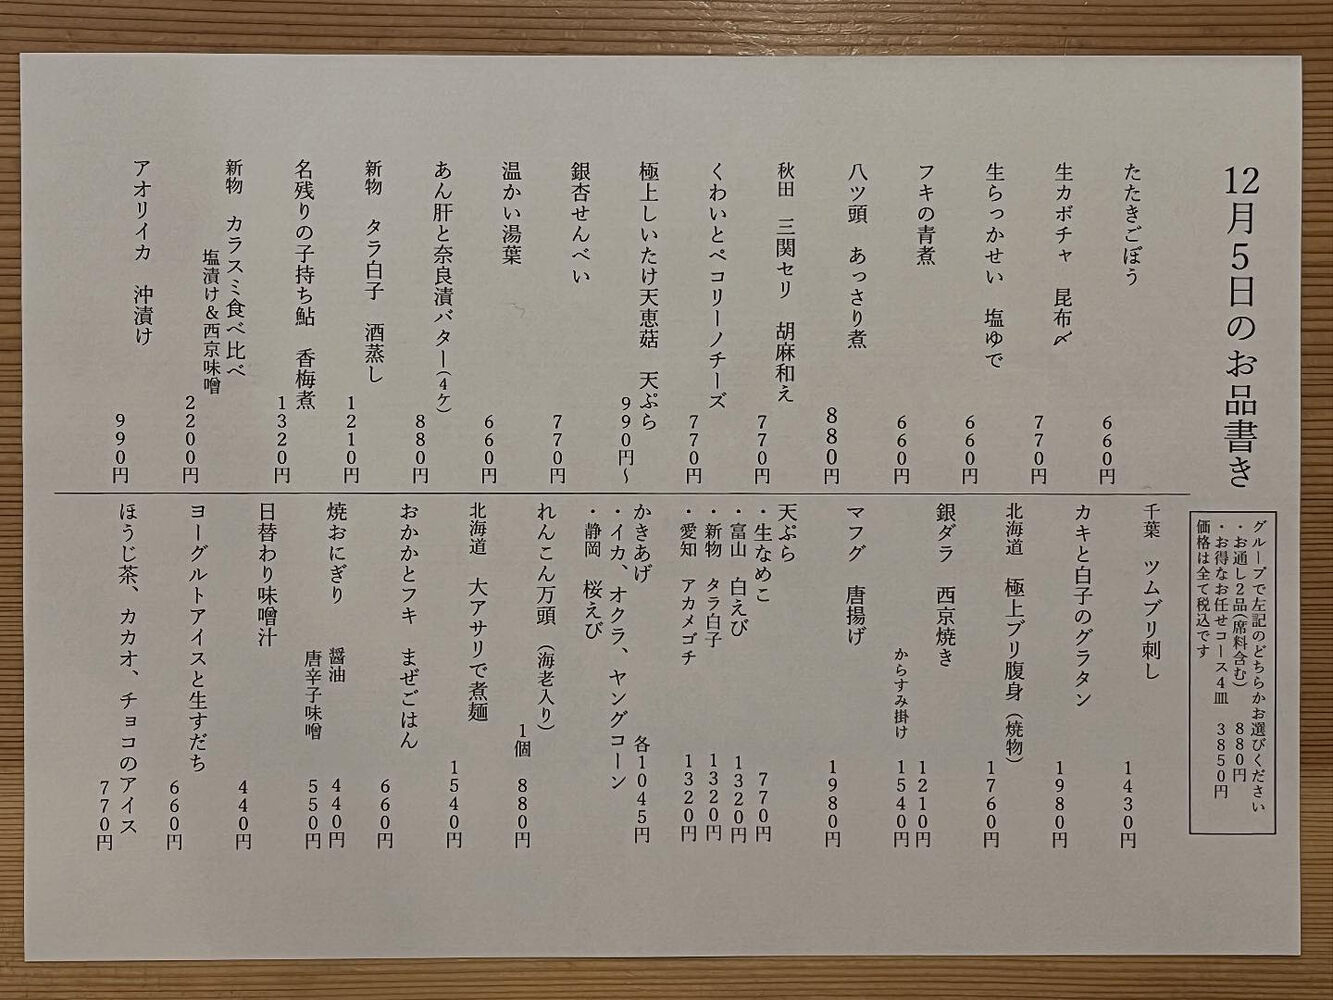 12月5日のお品書き
グループで左記のどちらかお選びください
・お通し2品(席料含む) 880円
・お得なお任せコース4皿 3850円
価格は全て税込です
たたきごぼう 660円
生カボチャ 昆布〆 770円
生らっかせい 塩ゆで 660円
フキの青煮 660円
八ツ頭 あっさり煮 880円
秋田 三関セリ 胡麻和え 770円
くわいとペコリーノチーズ 770円
極上しいたけ天恵菇 天ぷら 990円〜
銀杏せんべい 770円
温かい湯葉 660円
あん肝と奈良漬バター(4ケ) 880円
新物 タラ白子 酒蒸し 1210円
名残りの子持ち鮎 香梅煮 1320円
新物 カラスミ食べ比べ
塩漬け&西京味噌 2200円
アオリイカ 沖漬け 990円
千葉 ツムブリ刺し 1430円
カキと白子のグラタン 1980円
北海道 極上ブリ腹身(焼物) 1760円
銀ダラ 西京焼き 1210円
からすみ掛け 1540円
マフグ 唐揚げ 1980円
天ぷら
・生なめこ 770円
・富山 白えび 1320円
・新物 タラ白子 1320円
・愛知 アカメゴチ 1320円
かきあげ 各1045円
・イカ、オクラ、ヤングコーン
・静岡 桜えび
れんこん万頭(海老入り) 1個 880円
北海道 大アサリで煮麺 1540円
おかかとフキ まぜごはん 660円
焼おにぎり 醤油 440円
唐辛子味噌 550円
日替わり味噌汁 440円
ヨーグルトアイスと生すだち 660円
ほうじ茶、カカオ、チョコのアイス 770円